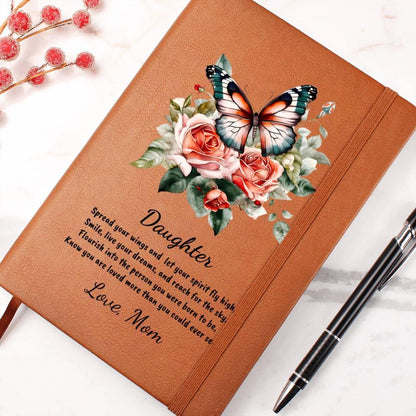 Daughter
Spread your wings and let your spirit fly high
Smile, live your dreams, and reach for the sky,
Flourish into the person you were born to be,
Know you are loved more than you could ever se
Love, Mom